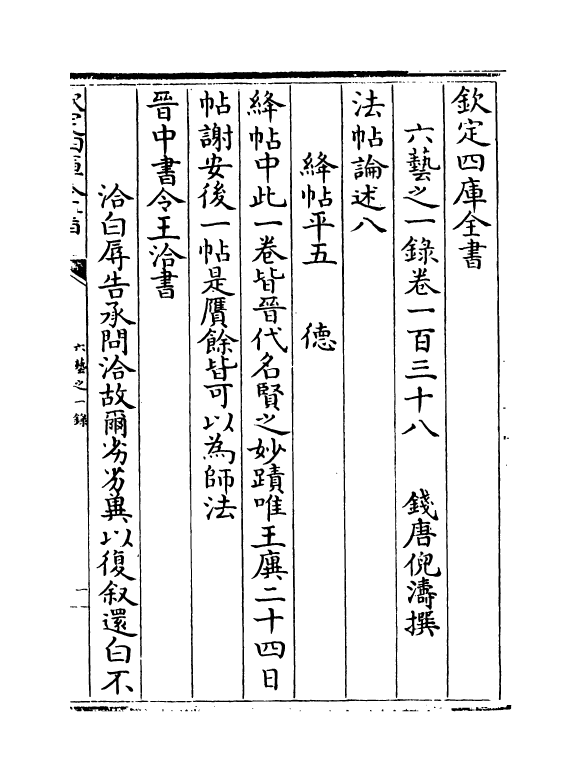 欽定四庫全書
六藝之一錄卷一百三十八 錢唐倪濤撰
法帖論述八
絳帖平五 德
絳帖中此一卷皆晉代名賢之妙蹟唯王廙二十四日
帖謝安後一帖是贋餘皆可以為師法
晉中書令王洽書
洽白辱告承問洽故爾劣劣異以復叙還白不
六藝之一錄
一